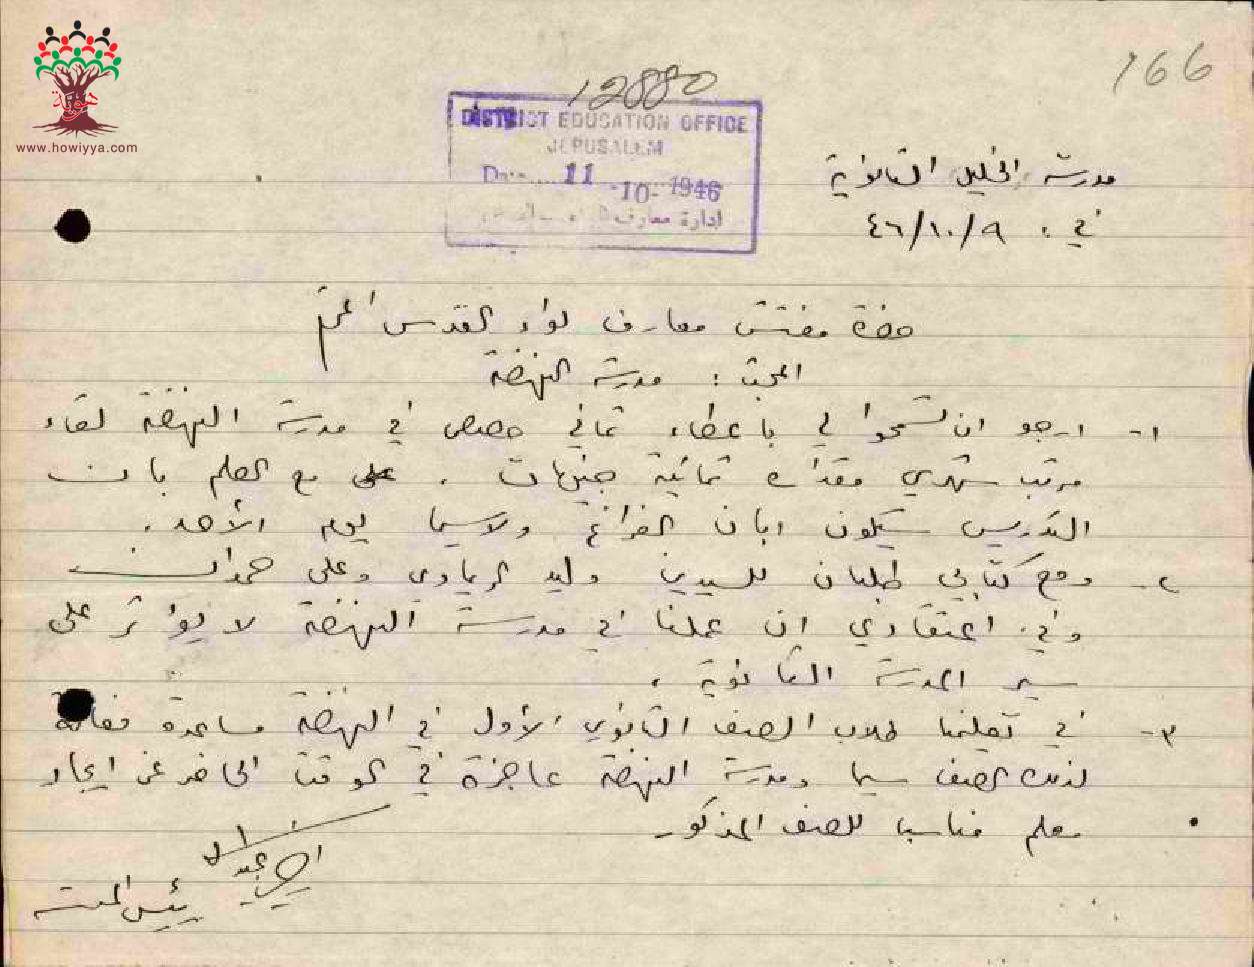 هوية
www.howiyya.com
166
12880
DISTRICT EDUCATION OFFICE
JERUSALEM
Date 11 -10- 1946
ادارة معارف
مدرسة الخليل الثانوية
في ٩/١٠/٤٦
حضرة مفتش معارف لواء القدس المحترم
المبحث : مدرسة النهضة
١- ارجو ان تسمحوا لي باعطاء ثماني حصص في مدرسة النهضة لقاء
مرتب شهري مقداره ثمانية جنيهات . مع العلم بان
التدريس سيكون ابان الفراغ ولاسيما يوم الأحد .
٢- ومع كتابي طلبان للسيدين وليد الريماوي وعلي حمدان
وفي اعتقادي ان عملنا في مدرسة النهضة لا يؤثر على
سير المدرسة الثانوية .
٣- في تعليمنا طلاب الصف الثانوي الأول في النهضة مساعدة فعالة
لذلك الصف سيما ومدرسة النهضة عاجزة في الوقت الحاضر عن ايجاد
معلم مناسب للصف المذكور
رئيس المدرسة